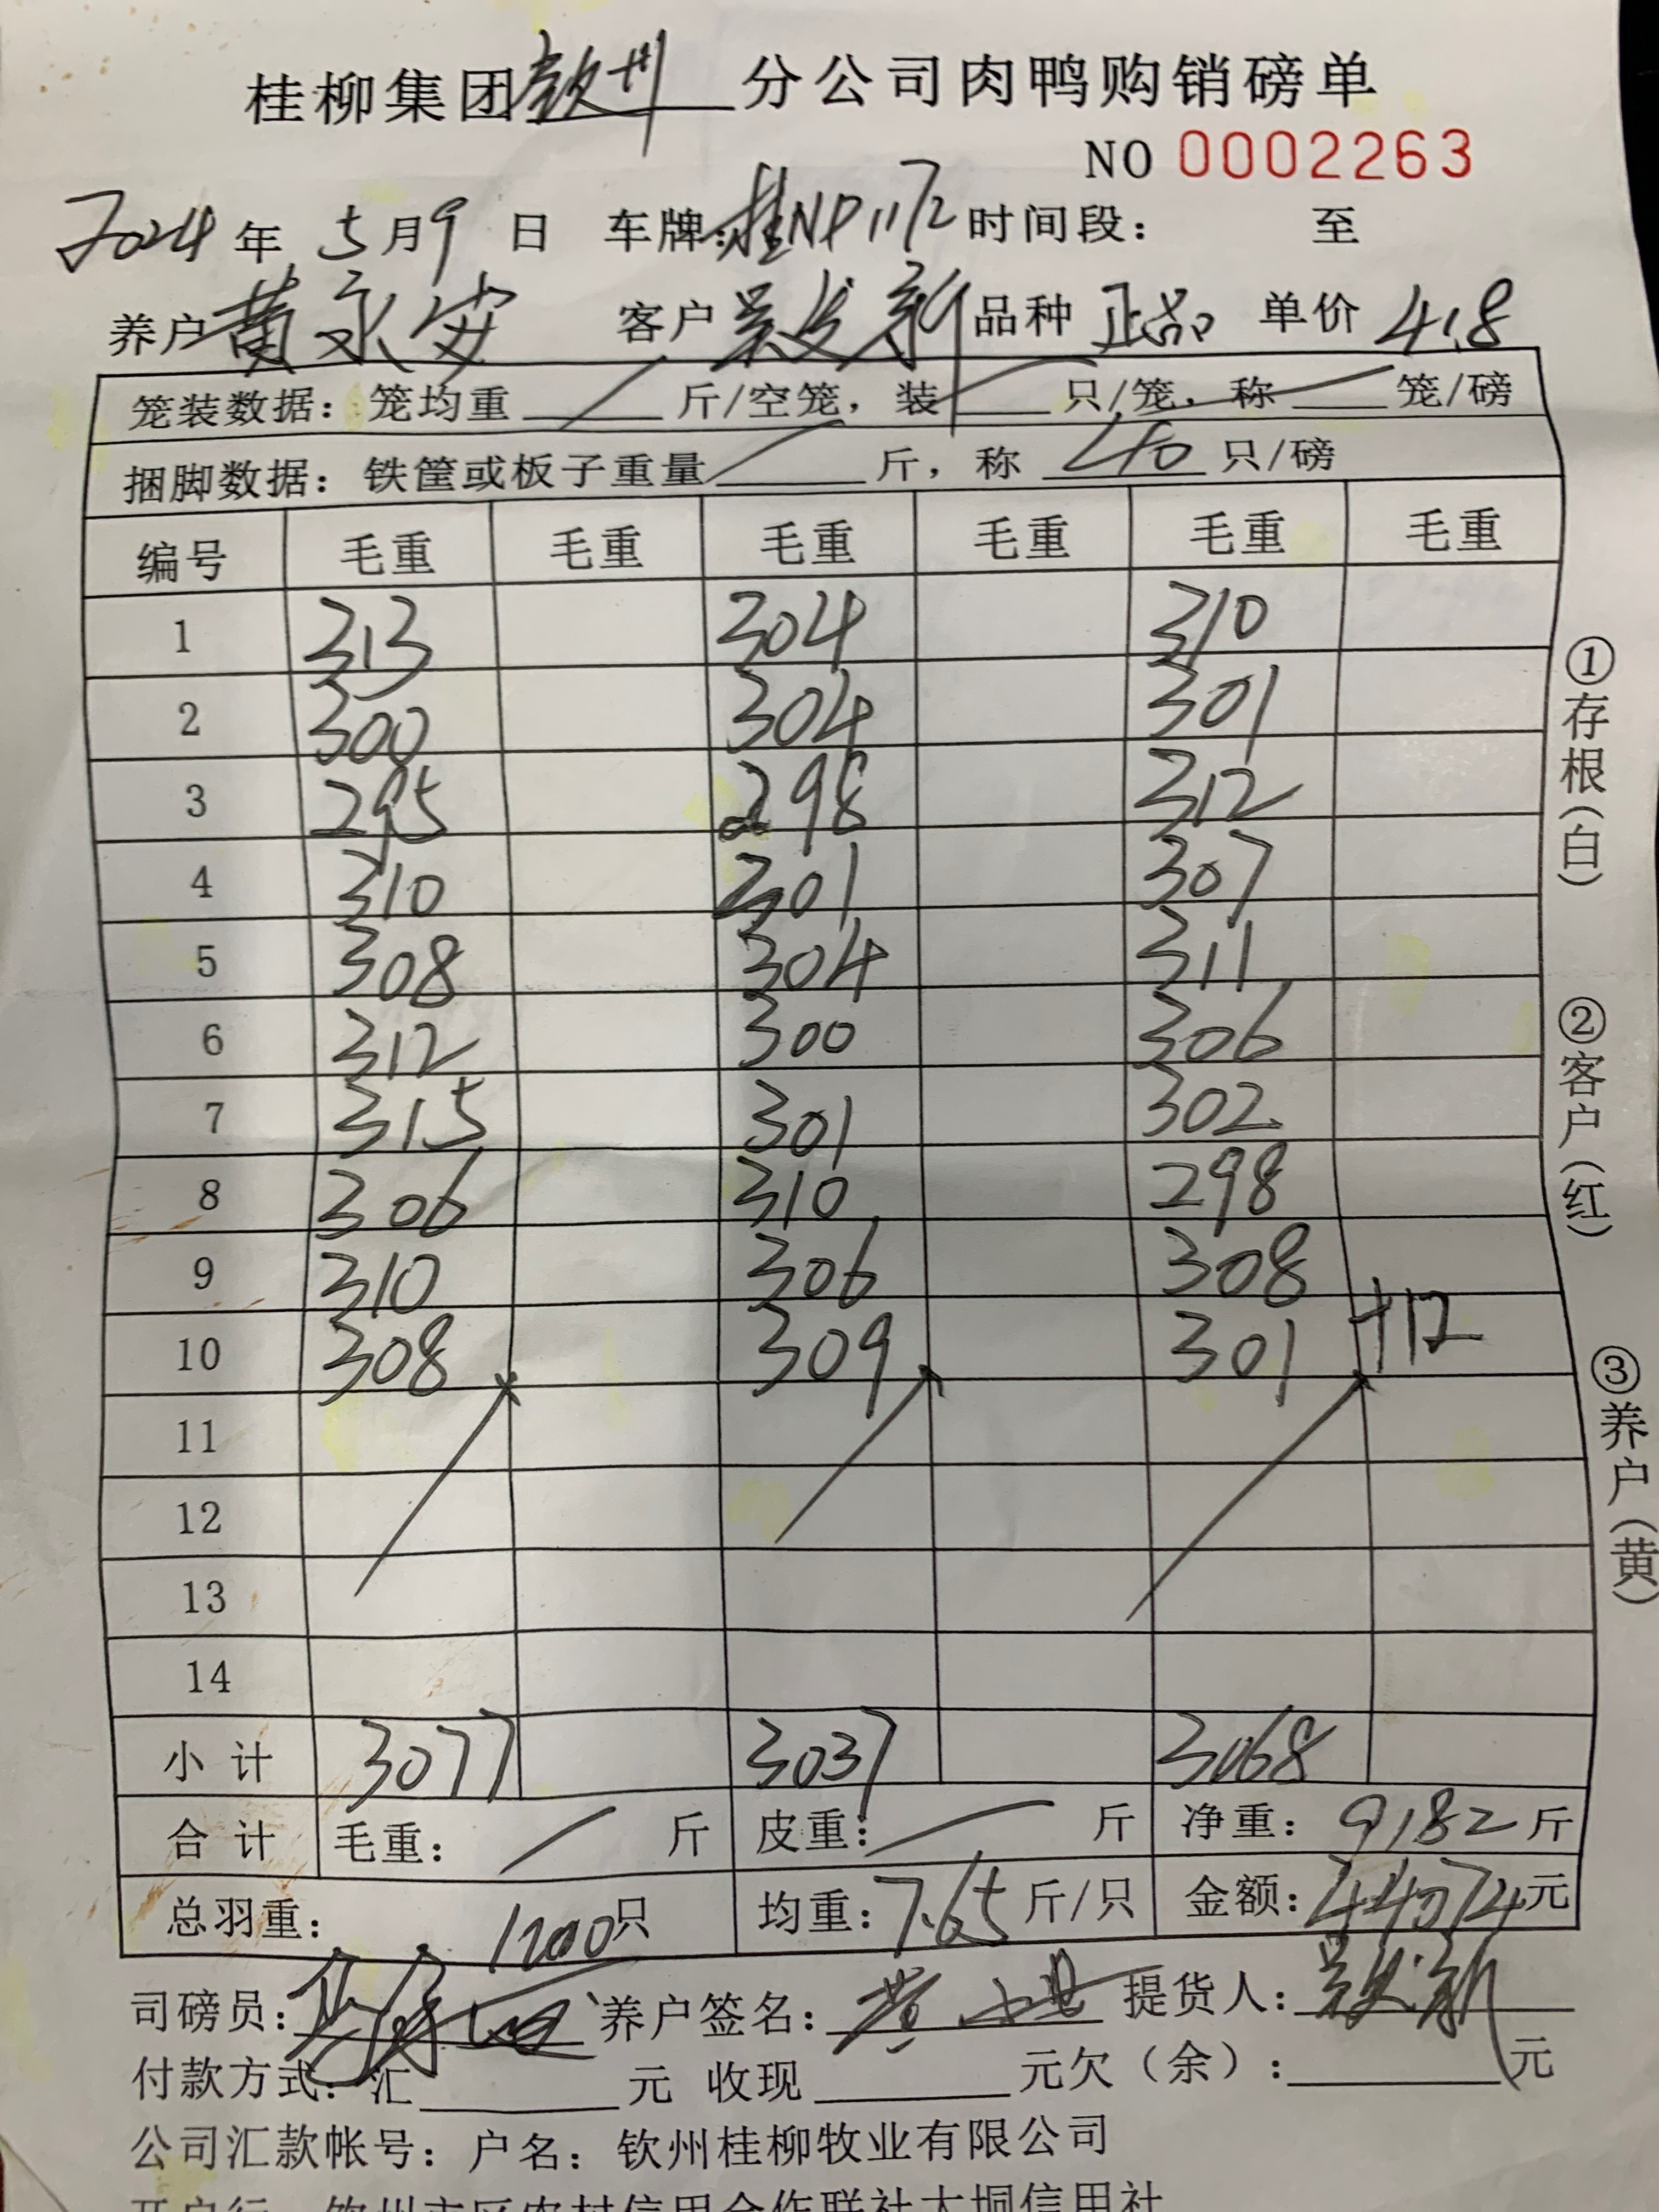 桂柳集团钦州分公司肉鸭购销磅单
NO 0002263
2024年5月9日 车牌:桂NP1172 时间段: 至
养户黄永安 客户吴发新 品种 正品 单价 4.8
笼装数据: 笼均重 斤/空笼, 装 只/笼, 称 笼/磅
捆脚数据: 铁筐或板子重量 斤, 称 40 只/磅
编号 毛重 毛重 毛重 毛重 毛重 毛重
1 313 304 310
2 300 304 301
3 295 298 312
4 310 301 307
5 308 304 311
6 312 300 306
7 315 301 302
8 306 310 298
9 310 306 308
10 308 309 301 +12
11
12
13
14
小计 3077 3037 3068
合计 毛重: 斤 皮重: 斤 净重: 9182 斤
总羽重: 1200只 均重: 7.65 斤/只 金额: 44074元
司磅员: 养户签名: 黄 提货人: 吴发新
付款方式: 汇 元 收现 元欠(余): 元
公司汇款帐号: 户名: 钦州桂柳牧业有限公司
开户行: 钦州市区农村信用合作联社大垌信用社
①存根(白)
②客户(红)
③养户(黄)